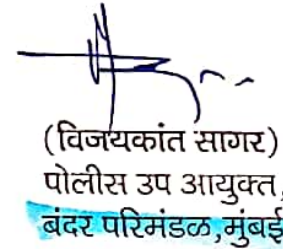 (विजयकांत सागर)
पोलीस उप आयुक्त,
बंदर परिमंडळ,मुंबई